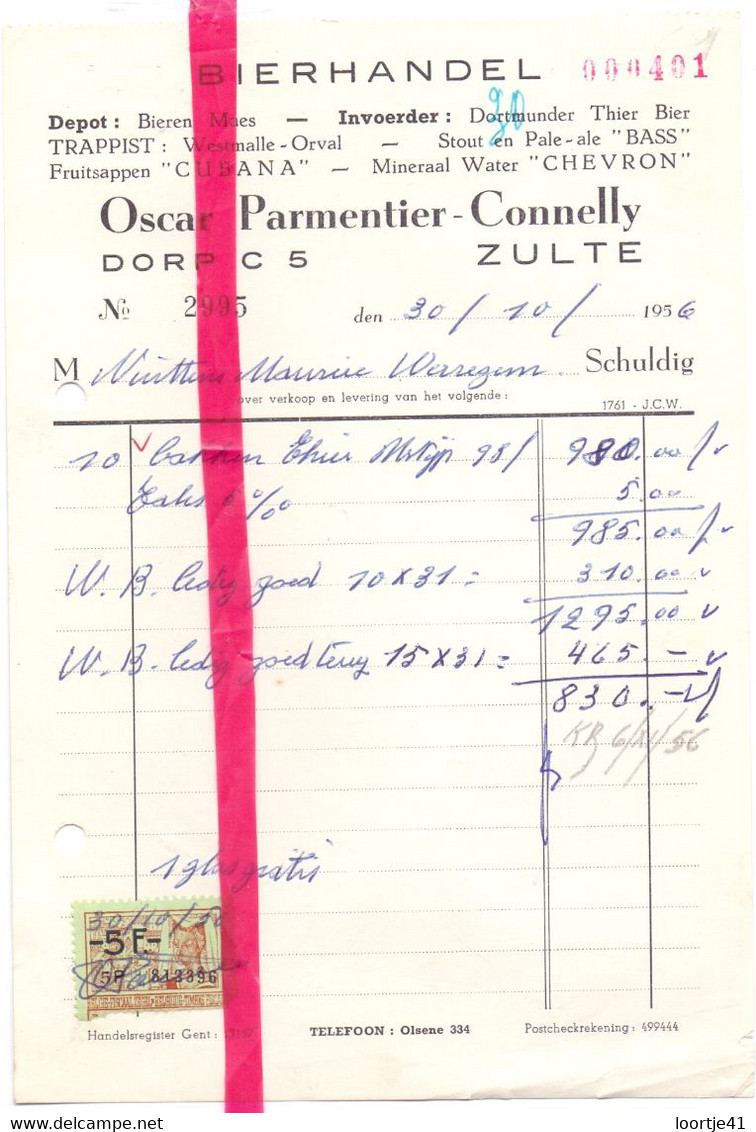 BIERHANDEL 000401
Depot : Bieren Maes — Invoerder : Dortmunder Thier Bier
TRAPPIST : Westmalle - Orval — Stout en Pale-ale "BASS"
Fruitsappen "CUBANA" — Mineraal Water "CHEVRON"
Oscar Parmentier - Connelly
DORP C 5 ZULTE
No 2995 den 30 / 10 / 1956
M Maurice Waregem Schuldig
over verkoop en levering van het volgende :
1761 - J.C.W.
10 bakken Thier 98/ 980.00
Taks 5 %o 5.00
985.00
W. B. ledig goed 10 x 31 = 310.00
1295.00
W. B. ledig goed terug 15 x 31 = 465.-
830.-
6/11/56
1 glas gratis
30/10/56
-5 F-
5P 813396
Handelsregister Gent :
TELEFOON : Olsene 334
Postcheckrekening : 499444
loortje41